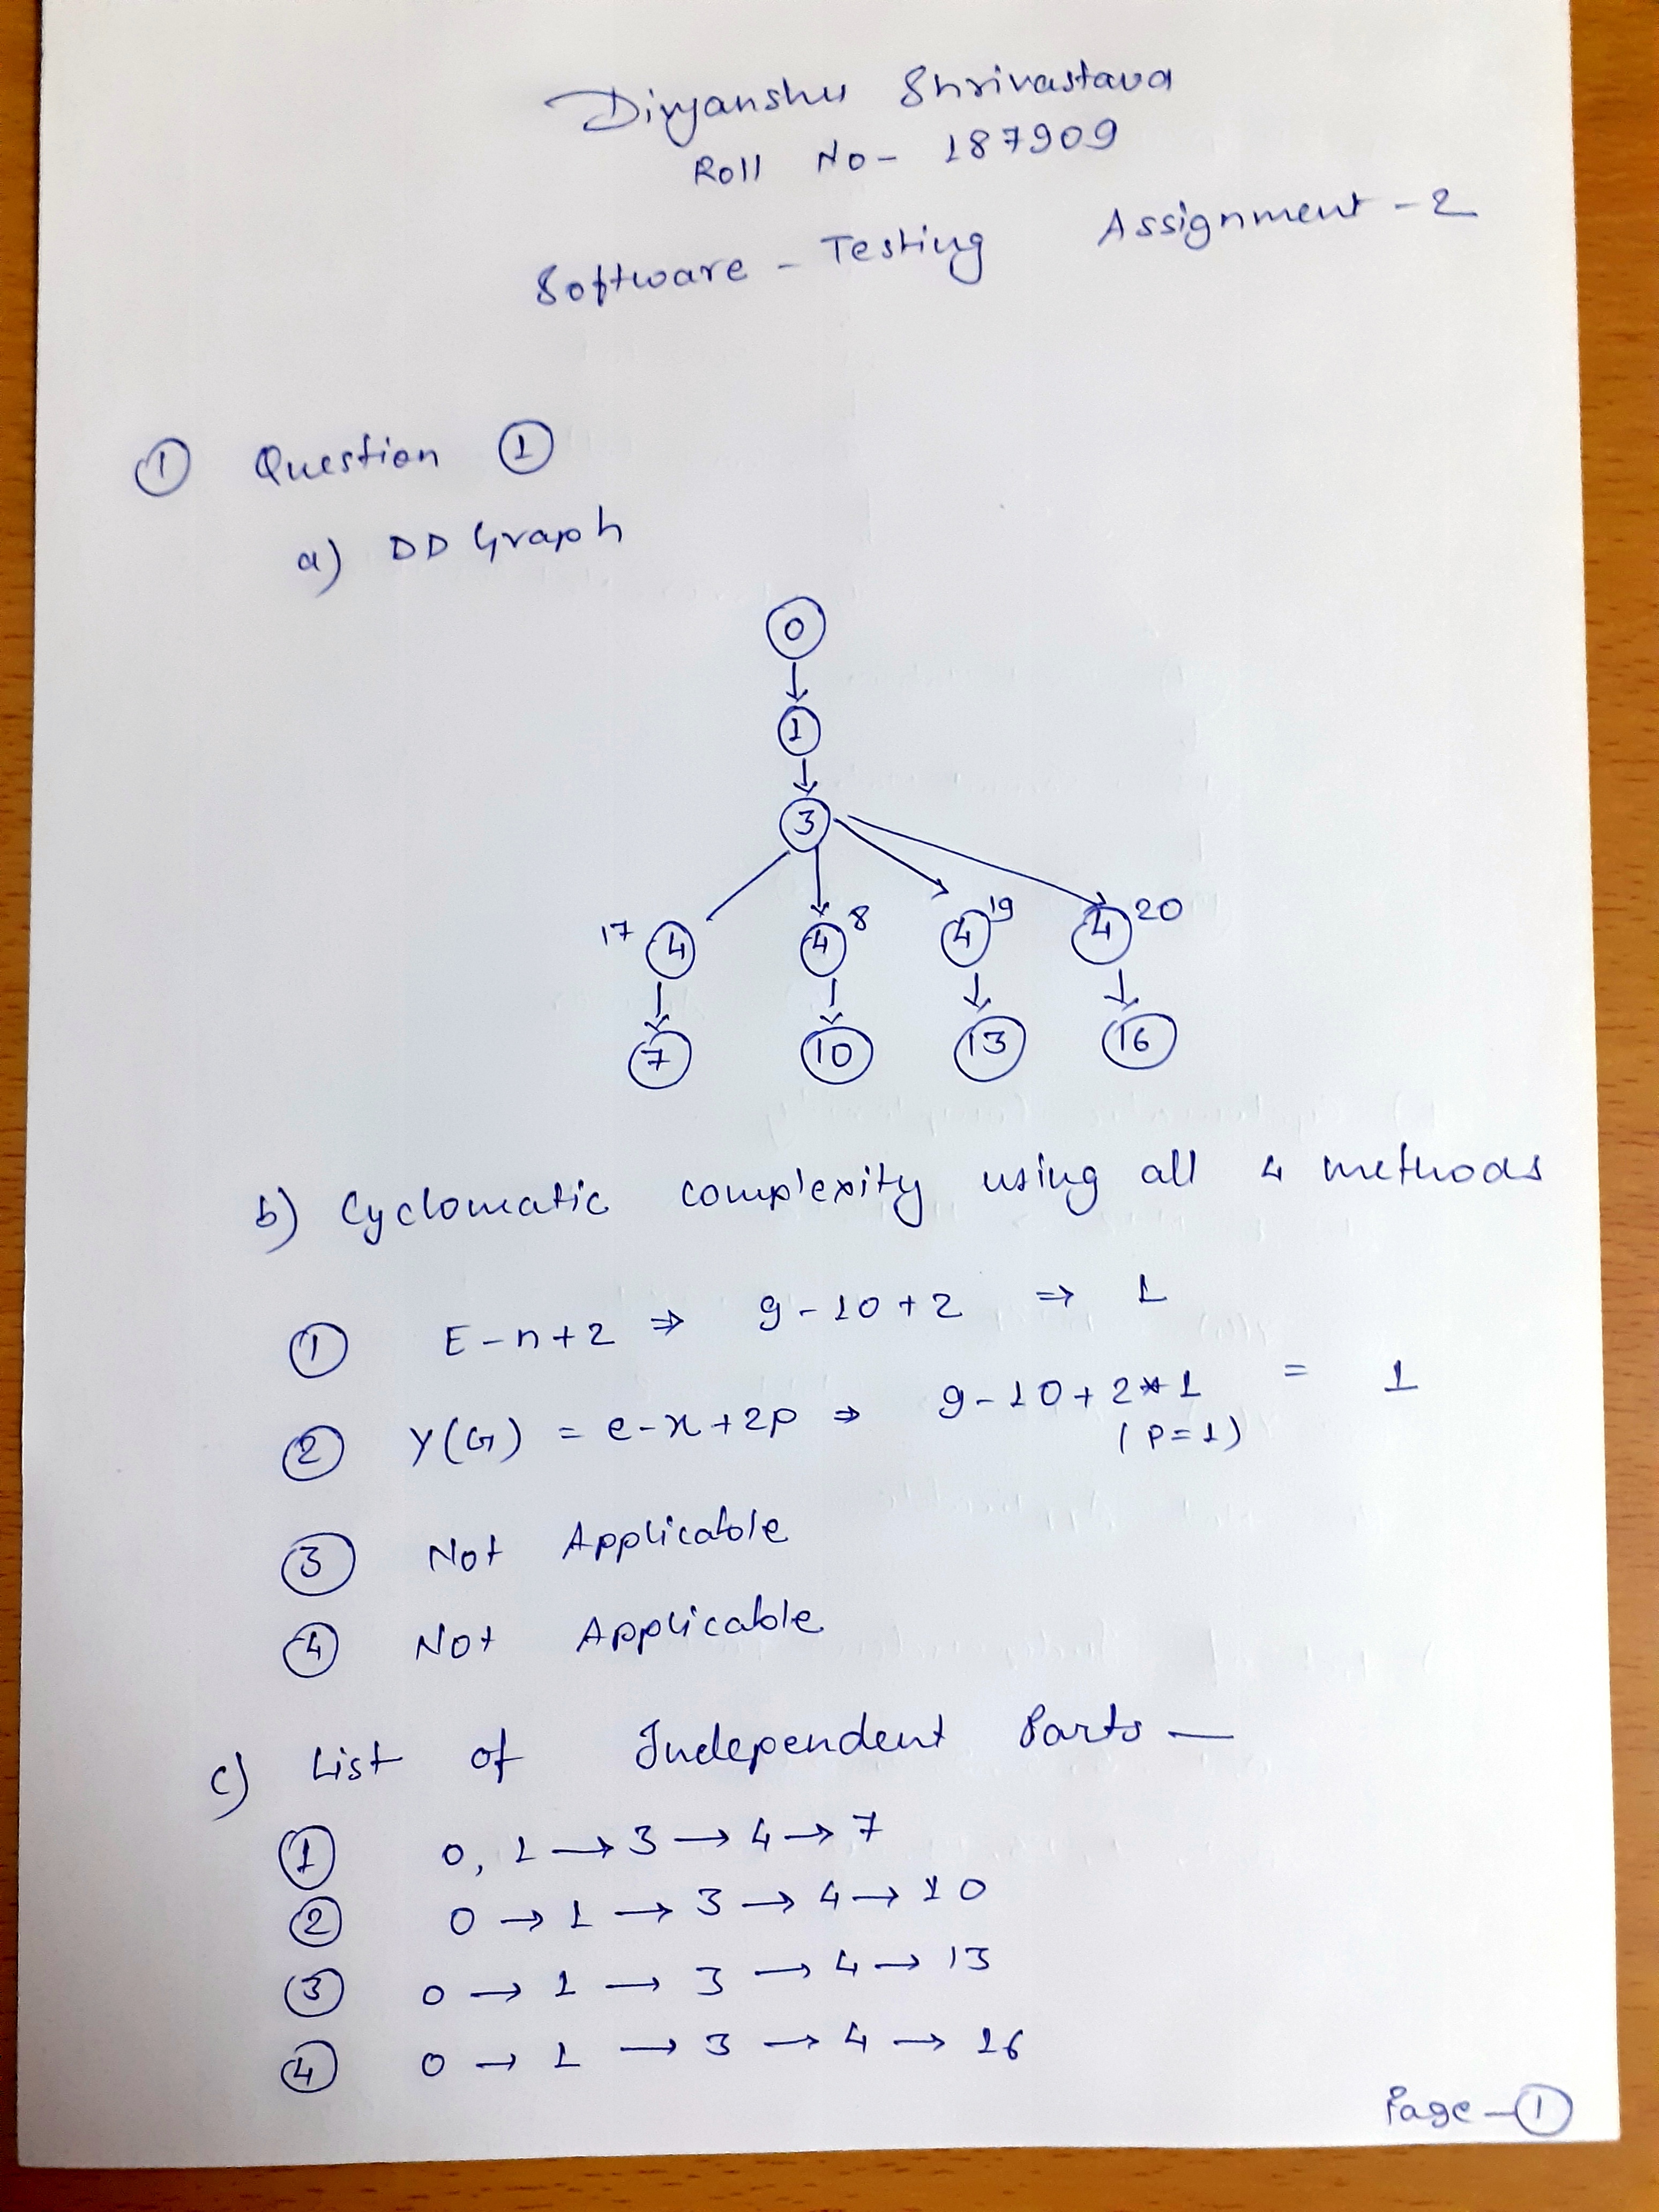 Divyanshu Shrivastava
Roll No- 187909
Software - Testing Assignment - 2
① Question ①
a) DD Graph
0
1
3
17 4 4 8 4 19 4 20
7 10 13 16
b) Cyclomatic complexity using all 4 methods
① E - n + 2 ⇒ 9 - 10 + 2 ⇒ 1
② Y(G) = e - n + 2p ⇒ 9 - 10 + 2 * 1 = 1
(P = 1)
③ Not Applicable
④ Not Applicable
c) List of Independent Parts —
① 0, 1 → 3 → 4 → 7
② 0 → 1 → 3 → 4 → 10
③ 0 → 1 → 3 → 4 → 13
④ 0 → 1 → 3 → 4 → 16
Page - ①